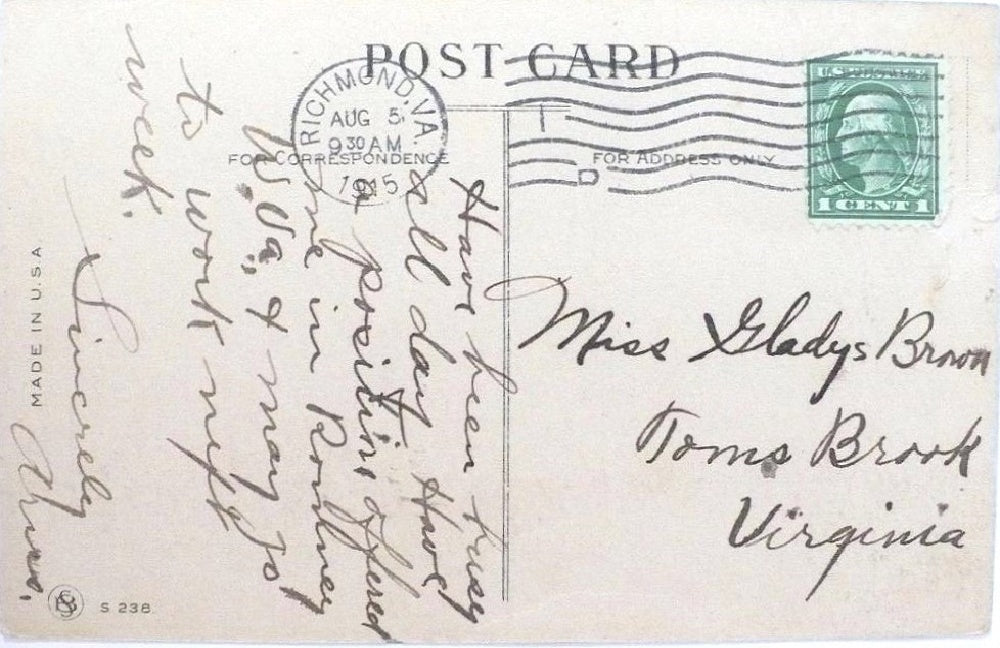 POST CARD
RICHMOND, VA.
AUG 5
9 30 AM
1915
FOR CORRESPONDENCE
FOR ADDRESS ONLY
U.S. POSTAGE
1 CENT 1
D
Have been busy
all day. Have
a position offered
me in Romney
W. Va., & may go
to work next
week.
Sincerely
Miss Gladys Brown
Toms Brook
Virginia
MADE IN U.S.A
S 238